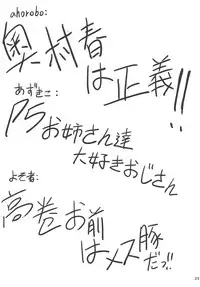 ahorobo:
奥村春
は正義!!
あずきこ:
P5
お姉さん達
大好きおじさん
よそ者:
高巻お前
はメス豚
だっ!!